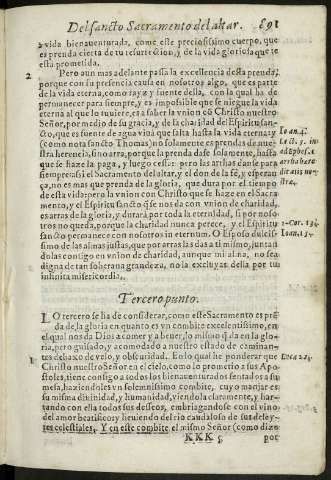 Del sancto Sacramento del altar. 691
a vida bienauenturada, come este preciosissimo cuerpo, que
es prenda cierta de tu resurectiõn, y de la vida gloriosa que te
esta prometida.
2 Pero aun mas adelante passa la excellencia desta prenda,
porque con su presencia causa en nosotros algo, que es parte
de la vida eterna, como rayz y fuente della, con la qual ha de
permanecer para siempre, y es impossible que se niegue la vida
eterna al que lo tuuiere, esa saber la vnion cõ Christo nuestro
Señor, por medio de su gracia, y de la charidad del Espiritu san-
cto, que es fuente de agua viua que salta hasta la vida eterna: y
(como nota sancto Thomas) no solamente es prenda de nues-
tra herencia, sino arra, porque la prenda dase solamente, hasta
que se haze la paga, y luego cesse: pero las arras dan se para
siempre: assi el Sacramento del altar, y el don de la fè, y esperan
ça, no es mas que prenda de la gloria, que dura por el tiempo
de esta vida: pero la vnion con Christo que se haze en el Sacra
mento, y el Espiritu sanctõ què nos da con vnion de charidad,
es arras de la gloria, y durarà por toda la eternidad, si por noso-
tros no queda, porque la charidad nunca perece, y el Espiritu
sancto permanece con nosotros in eternum. O Esposo dulcis-
simo de las almas justas, que por arras las das a ti mismo, juntan
dolas contigo en vnion de charidad, aunque mi alma, no sea
digna de tan soberana grandeza, no la excluyas della por tu
infinita misericordia.
Ioan. 4.
Lect. 5. in
ad Ephes. 1
arrha hære
ditatis nos
tre.
1-Cor. 13.
Ioan. 13.
Tercero punto.
LO tercero se ha de considerar, como este Sacramento es prẽ
da de la gloria en quanto es vn combite excelentissimo, en
el qual nos da Dios a comer y a beuer, lo mismo q̃ da en la glo
ria, pero guisado, y acomodado a nuestro estado de caminan-
tes debaxo de velo, y obscuridad. En lo qual he ponderar que
1 Christo nuestro Señor en el cielo, como lo prometio a sus Apo-
stoles, tiene consigo a todos los bienauenturados sentados a su
mesa, haziendoles vn solemnissimo combite, cuyo manjar es
su misma diuinidad, y humanidad, viendola claramente, y har-
tando con ella todos sus desseos, embriagandose con el vino
del amor beatifico: y beuiendo del rio caudaloso de sus deley-
tes celestiales. Y en este combite el mismo Señor (como dizo
Luca 22.
KKK 5 por